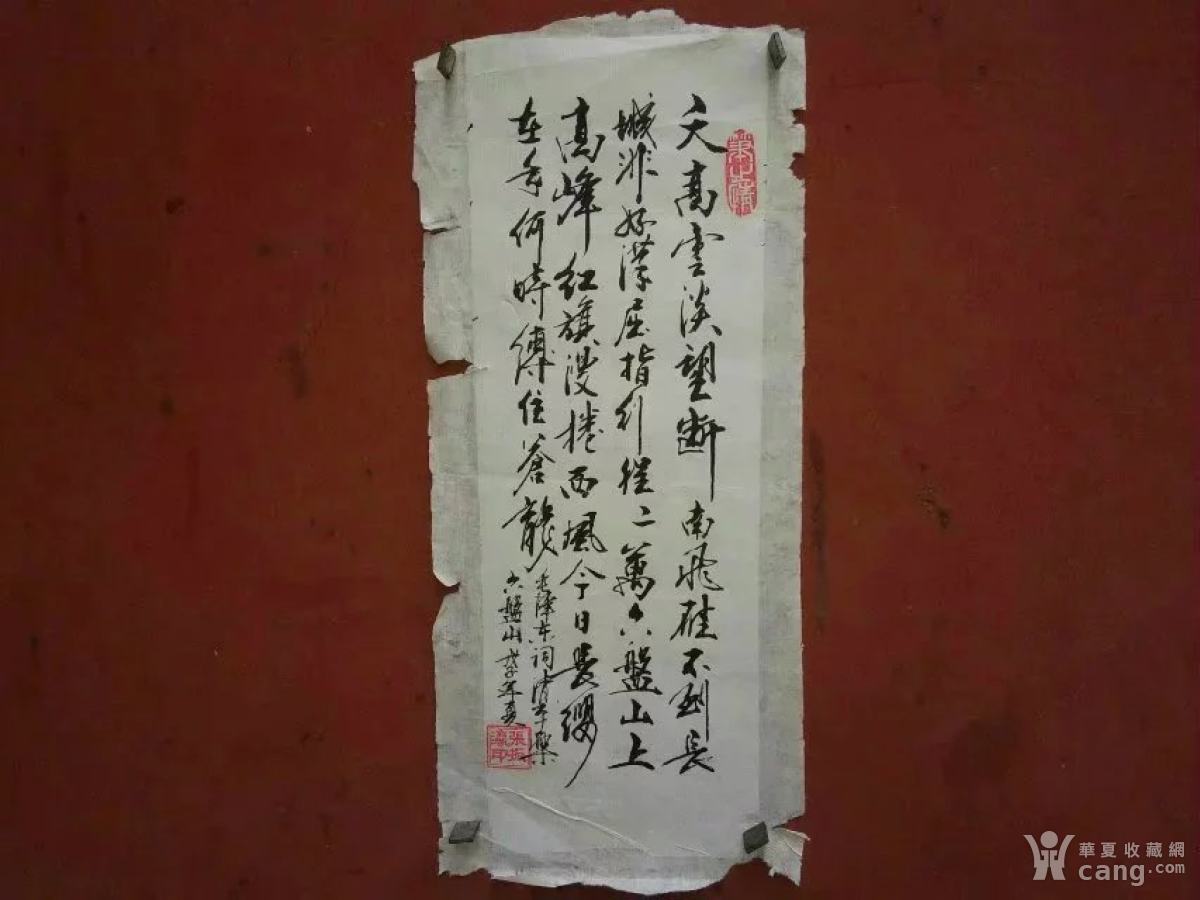 天高雲淡望斷南飛雁不到長
城非好漢屈指行程二萬六盤山上
高峰紅旗漫捲西風今日長纓
在手何時縛住蒼龍
毛澤东词清平樂
六盤山戊子年夏
華夏收藏網
cang.com